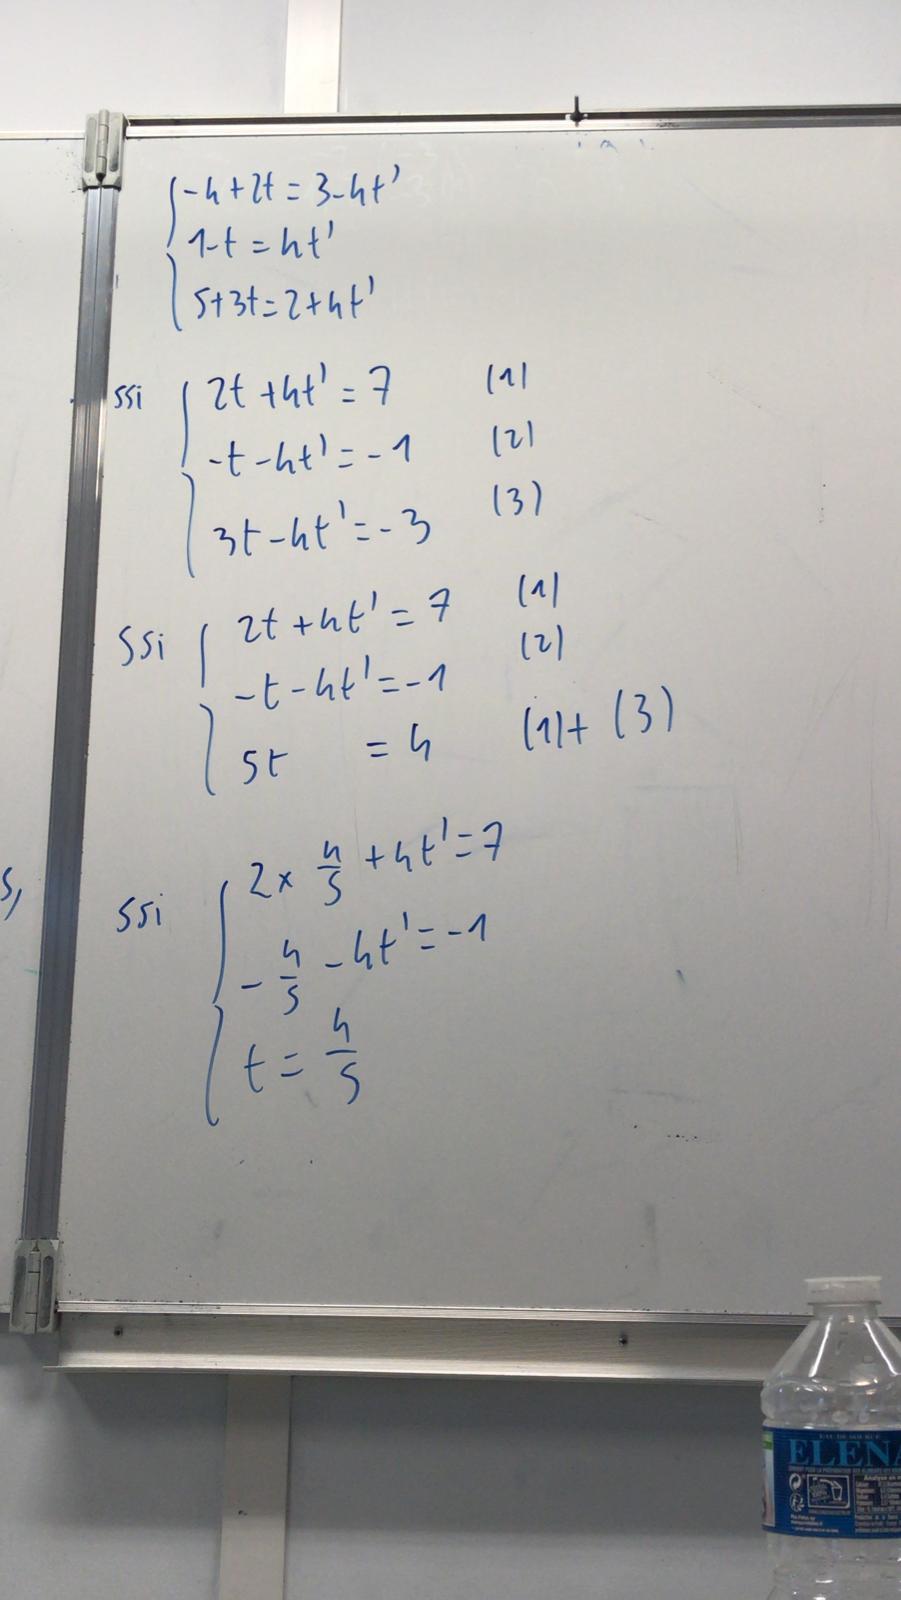 -4+2t = 3-4t'
1-t = 4t'
5+3t=2+4t'
ssi 2t+4t' = 7 (1)
-t-4t' = -1 (2)
3t-4t' = -3 (3)
ssi 2t+4t' = 7 (1)
-t-4t' = -1 (2)
5t = 4 (1)+(3)
ssi 2 x 4/5 + 4t' = 7
-4/5 - 4t' = -1
t = 4/5
s,
EAU DE SOURCE
ELENA